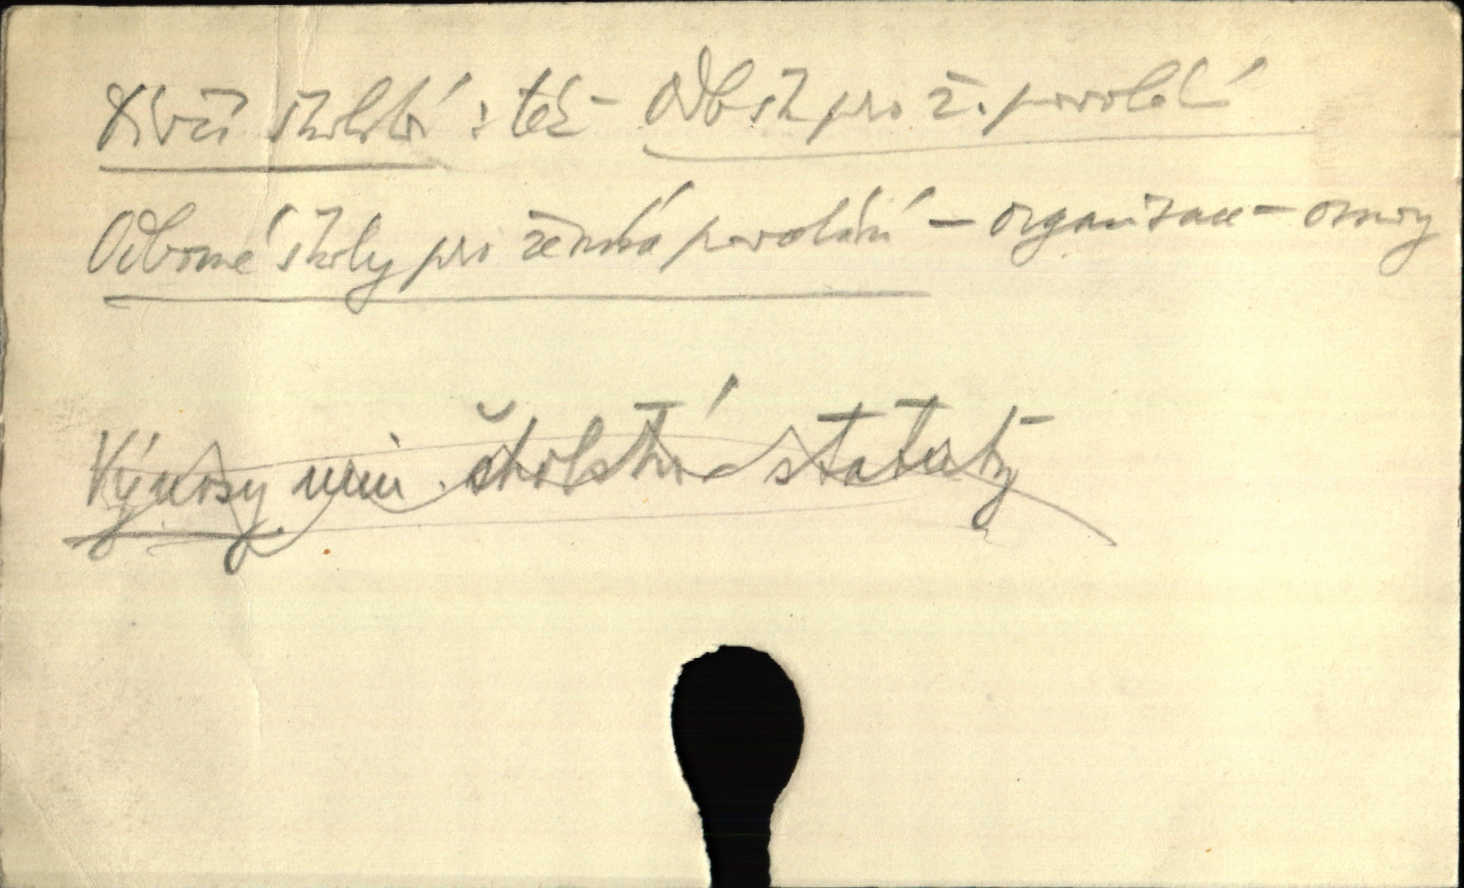 Dívčí školství: též - Odb šk pro ž. povolání
Odborné školy pro ženská povolání - organisace - osnovy
Výnosy min. školství a statuty